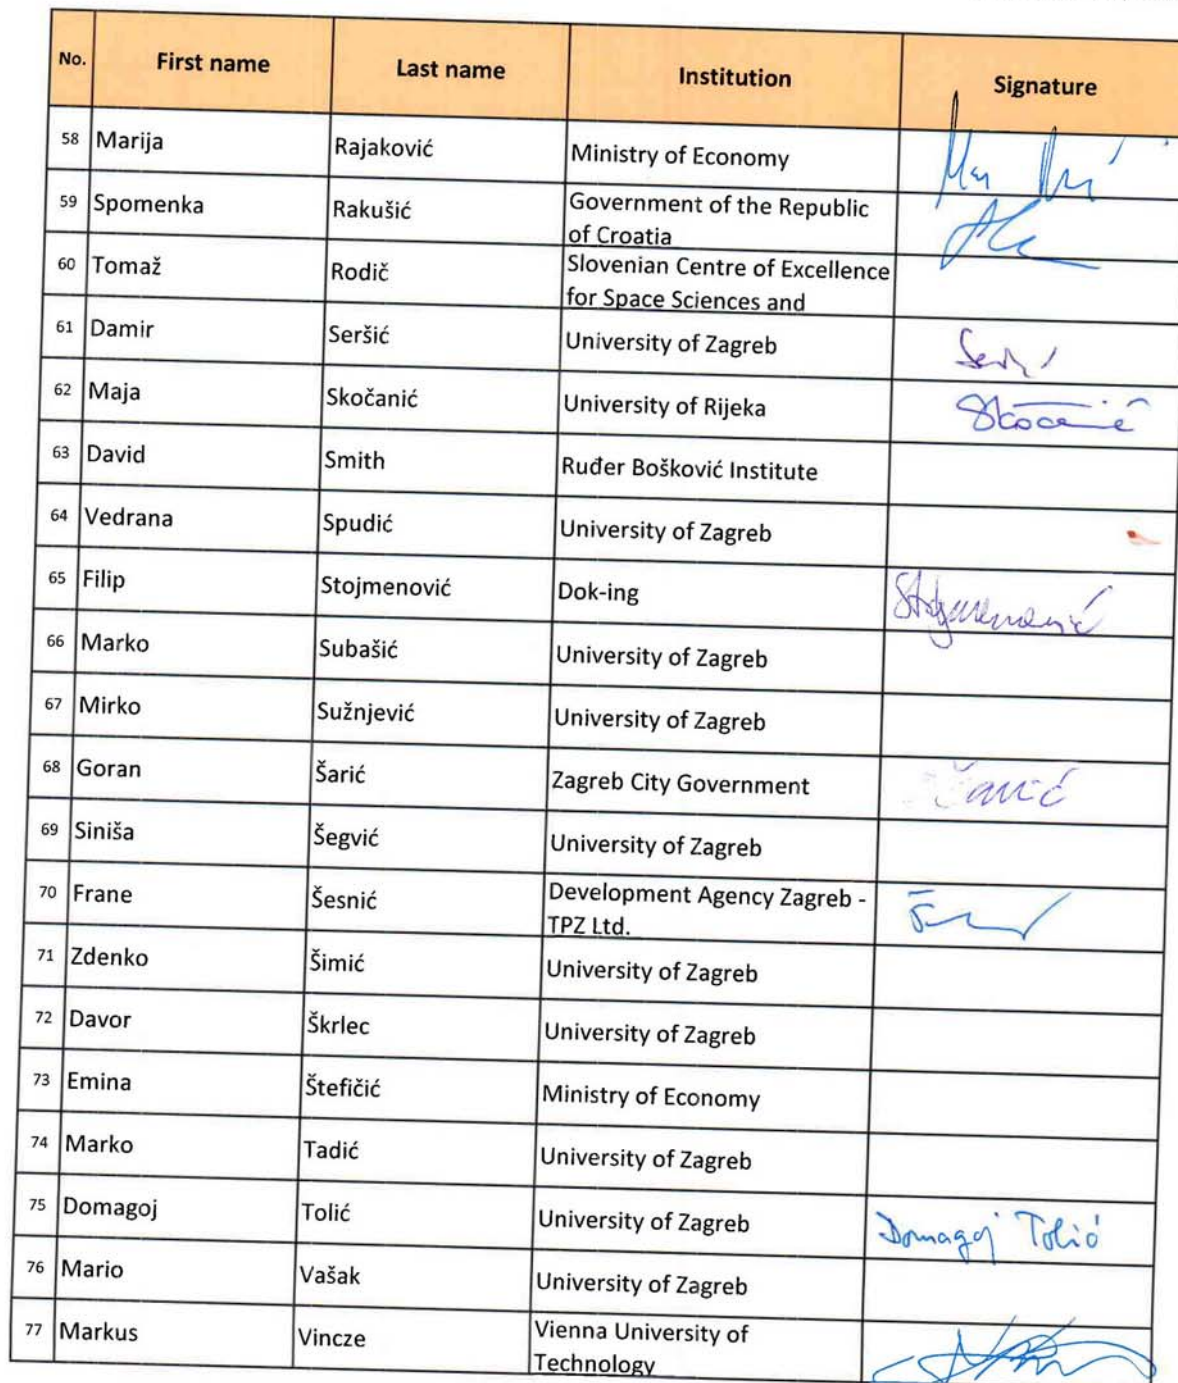 No. First name Last name Institution Signature
58 Marija Rajaković Ministry of Economy
59 Spomenka Rakušić Government of the Republic
of Croatia
60 Tomaž Rodič Slovenian Centre of Excellence
for Space Sciences and
61 Damir Seršić University of Zagreb
62 Maja Skočanić University of Rijeka Skočanić
63 David Smith Ruđer Bošković Institute
64 Vedrana Spudić University of Zagreb
65 Filip Stojmenović Dok-ing Stojmenović
66 Marko Subašić University of Zagreb
67 Mirko Sužnjević University of Zagreb
68 Goran Šarić Zagreb City Government Šarić
69 Siniša Šegvić University of Zagreb
70 Frane Šesnić Development Agency Zagreb -
TPZ Ltd.
71 Zdenko Šimić University of Zagreb
72 Davor Škrlec University of Zagreb
73 Emina Štefičić Ministry of Economy
74 Marko Tadić University of Zagreb
75 Domagoj Tolić University of Zagreb Domagoj Tolić
76 Mario Vašak University of Zagreb
77 Markus Vincze Vienna University of
Technology